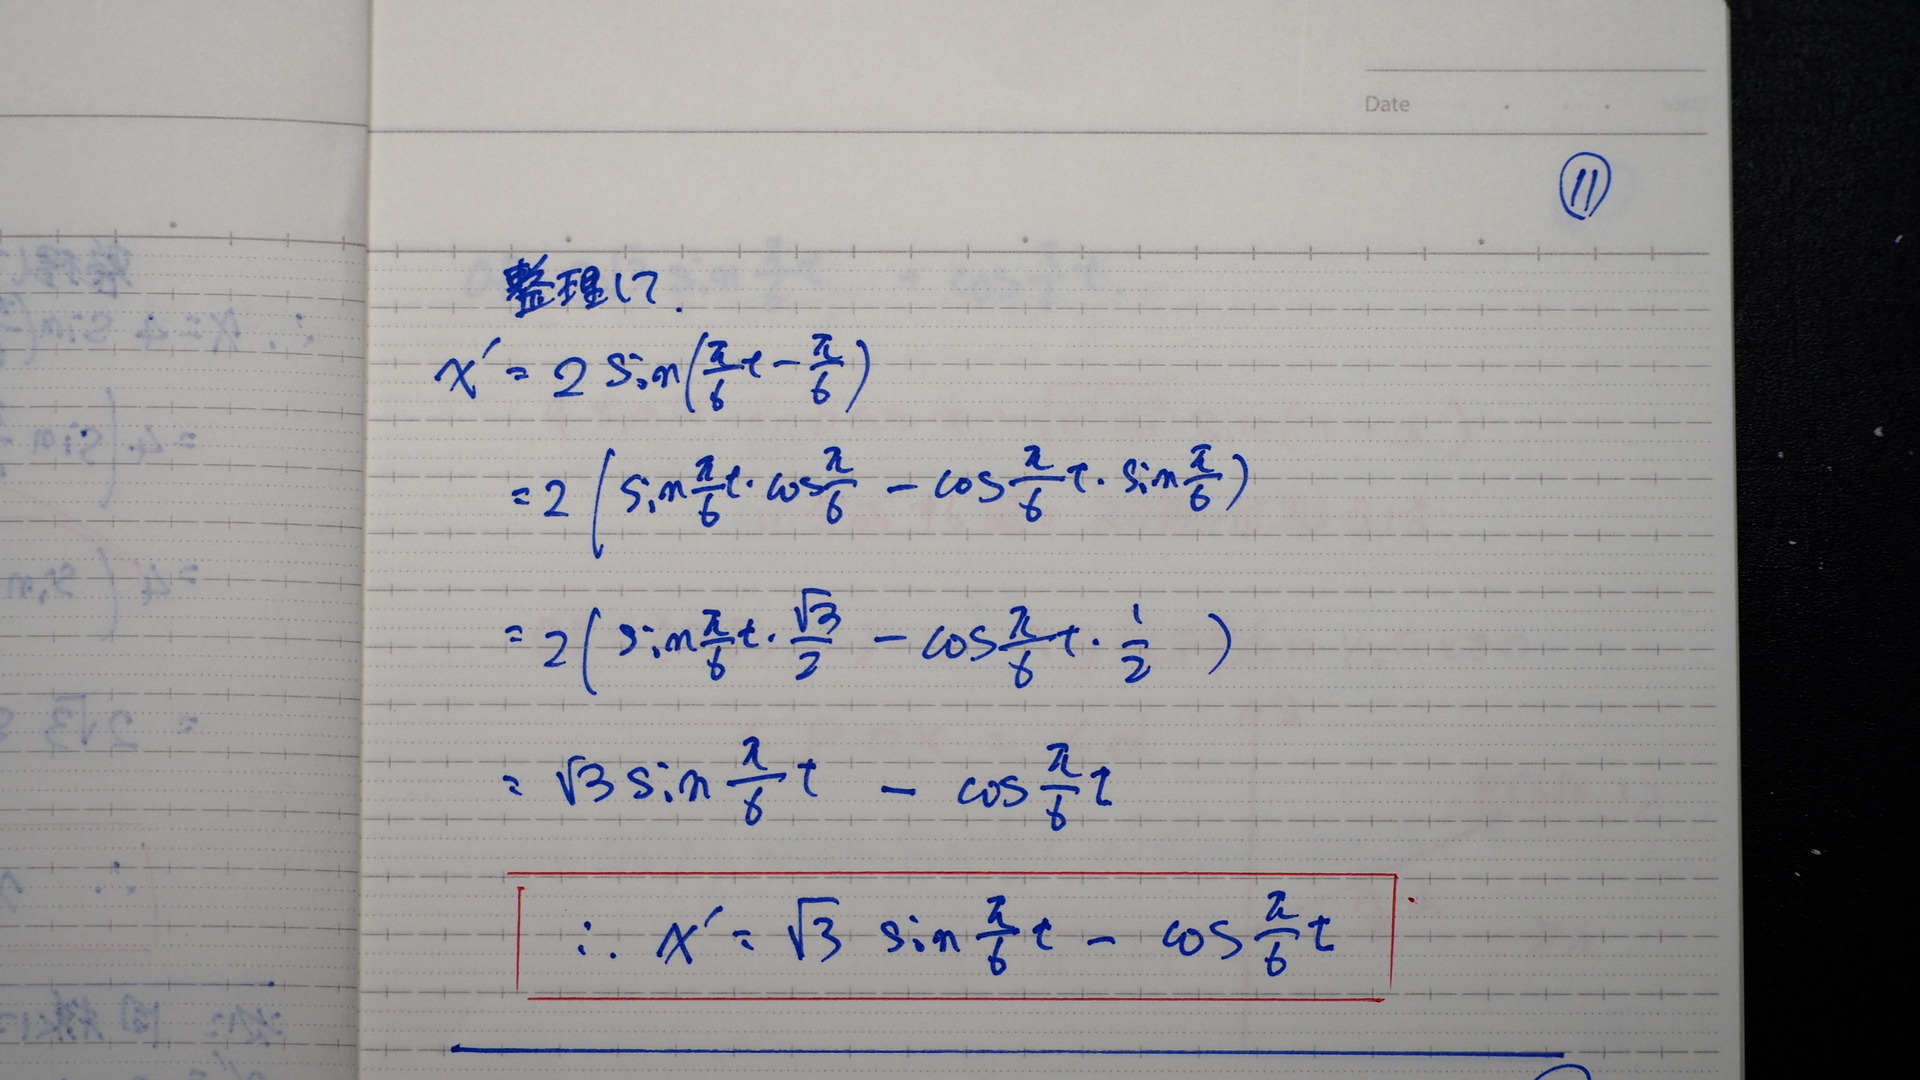 Date
⑪
整理して.
x′ = 2 sin(π/6 t − π/6)
= 2 ( sin π/6 t · cos π/6 − cos π/6 t · sin π/6 )
= 2 ( sin π/6 t · √3/2 − cos π/6 t · 1/2 )
= √3 sin π/6 t − cos π/6 t
∴ x′ = √3 sin π/6 t − cos π/6 t